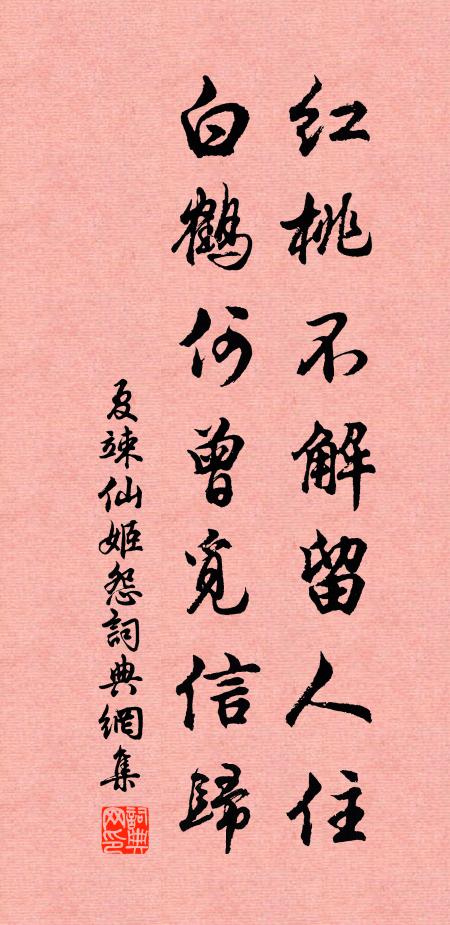 红桃不解留人住
白鹤何曾觅信歸
夏竦仙姬怨詞典網集
詞典
网印